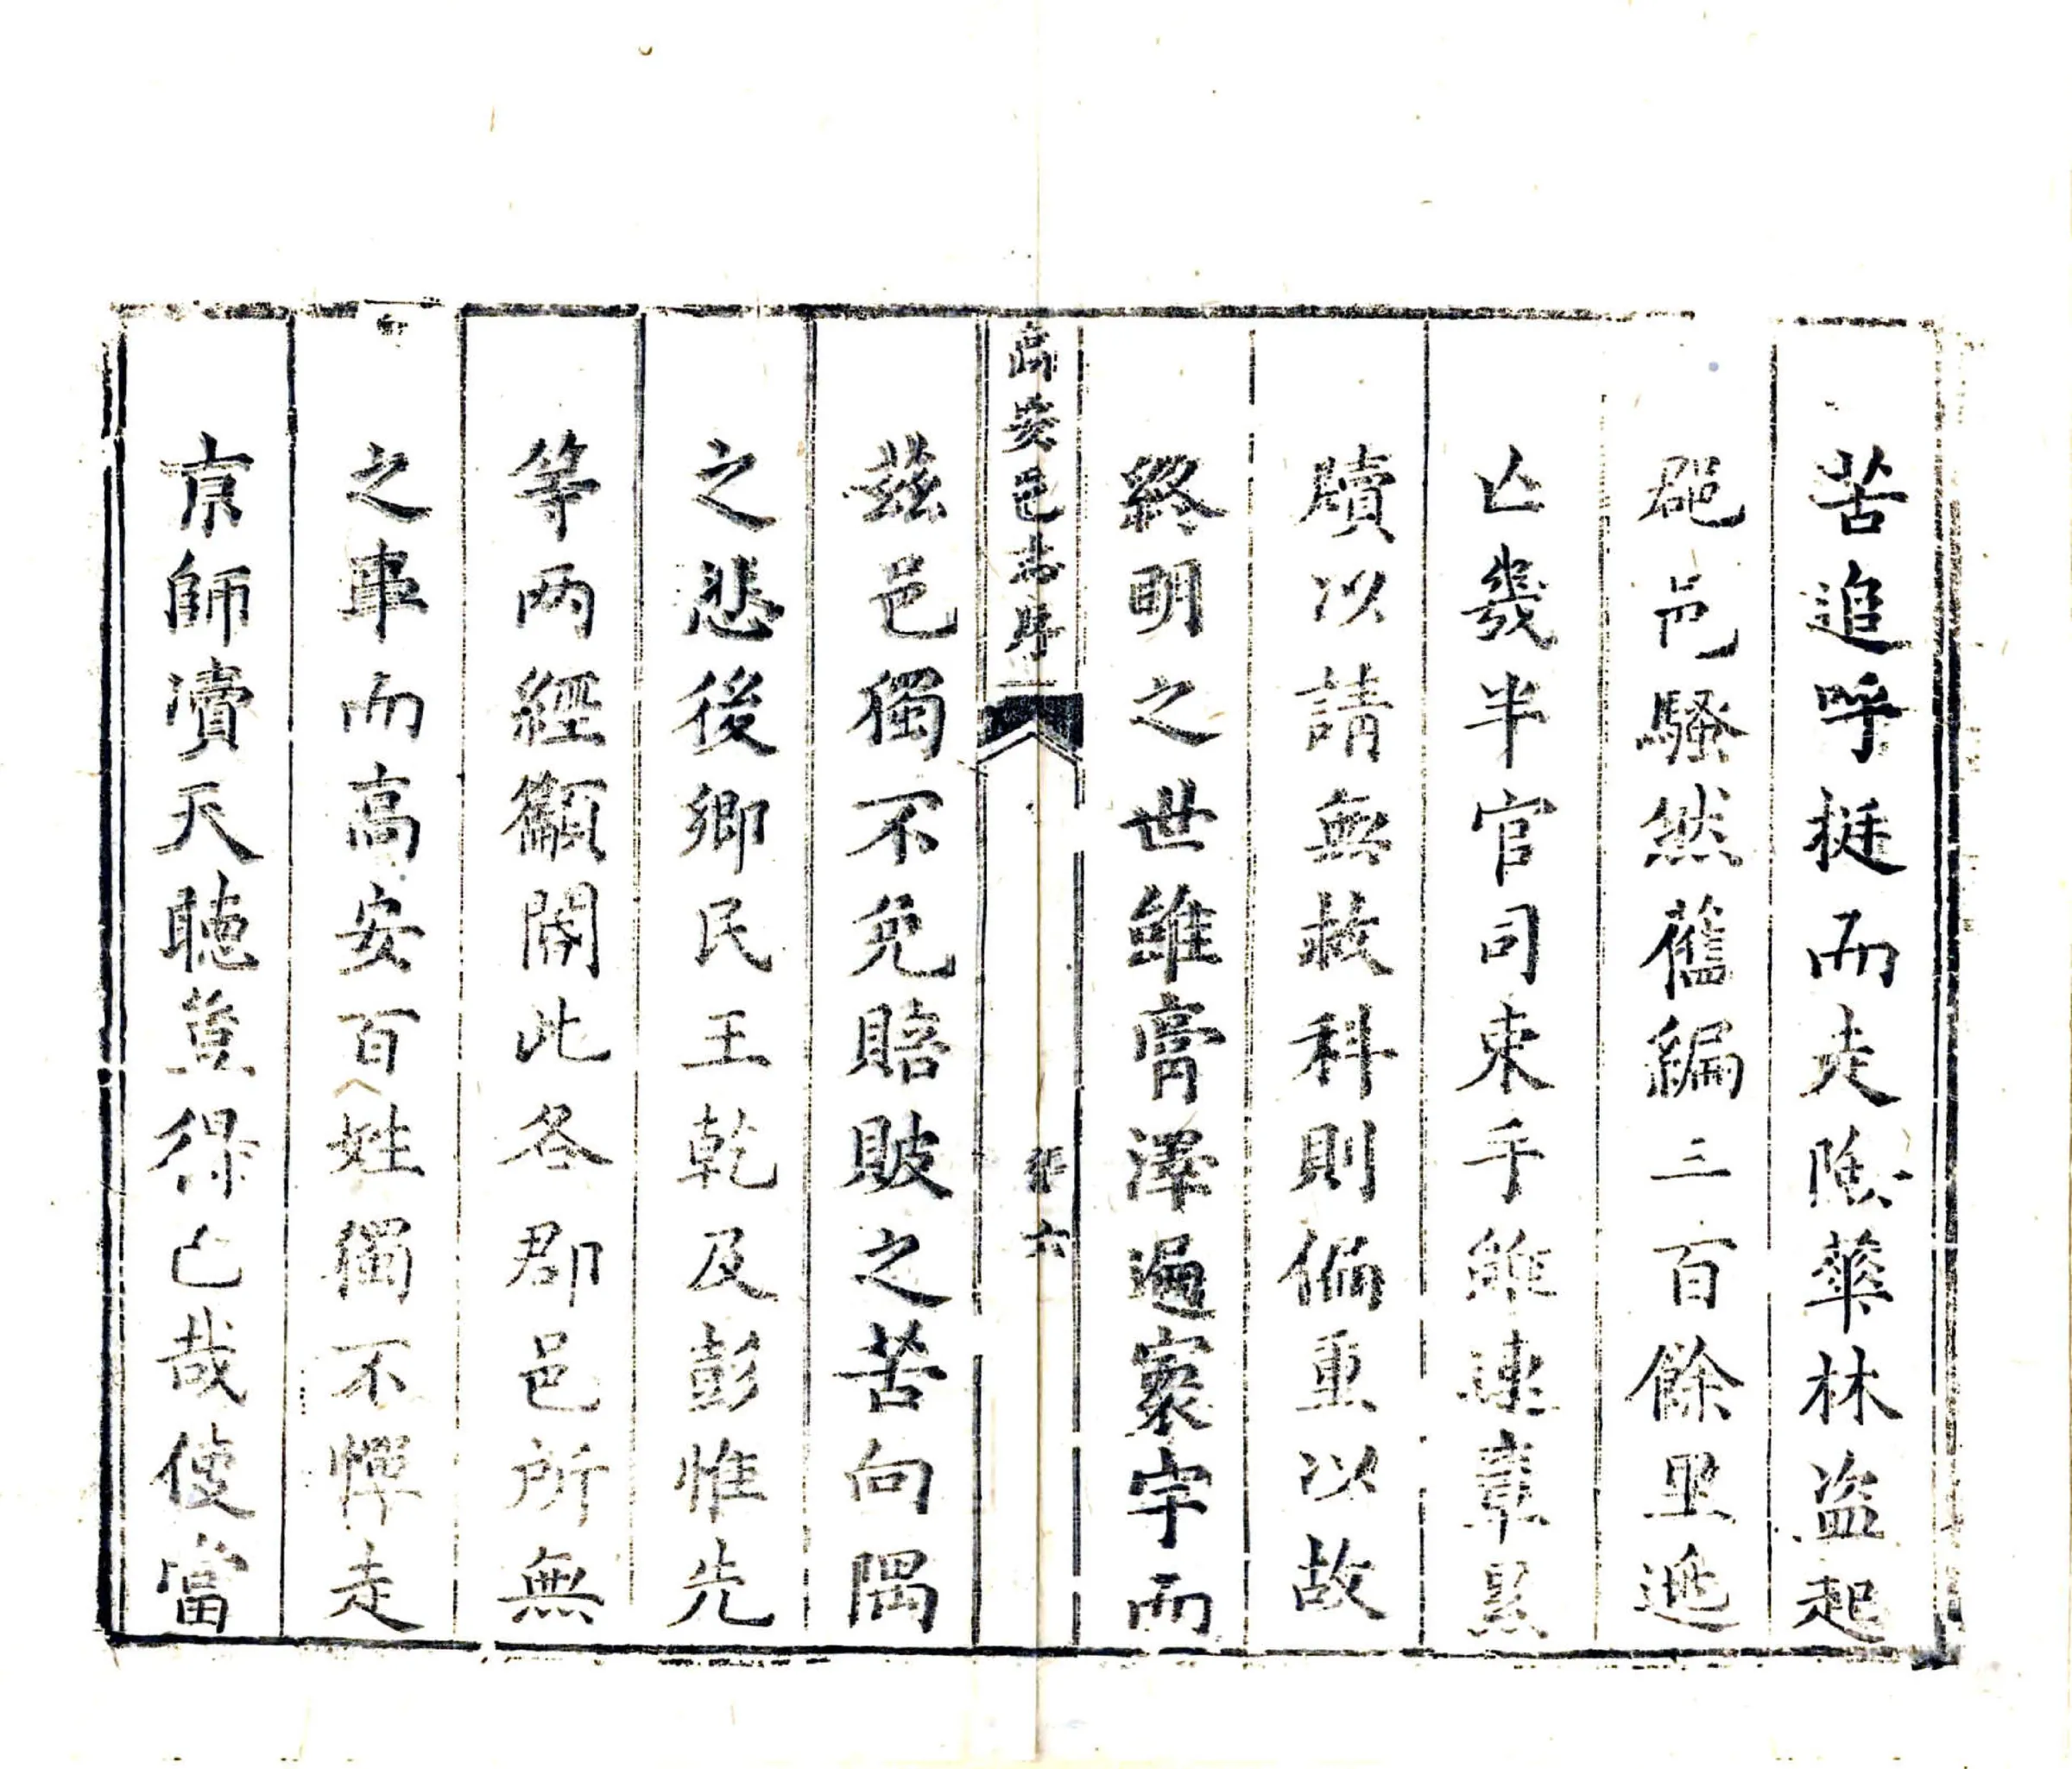 苦追呼挺而走險華林盜起
郡邑騷然舊編三百餘里逃
亡幾半官司束手雖連章累
牘以請無救科則偏重以故
終明之世雖膏澤遍寰宇而
高安邑志序
張
六
茲邑獨不免賠賍之苦向隅
之悲後鄉民王乾及彭惟先
等兩經顲閽此各郡邑所無
之事而高安百姓獨不憚走
京師瀆天聽冀得已哉使當